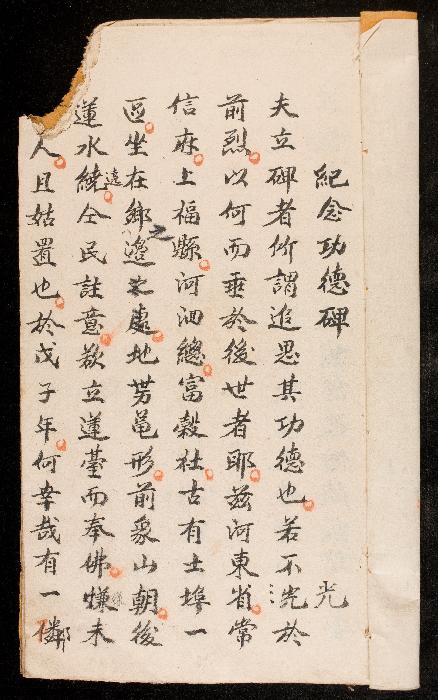 紀念功德碑 光
夫立碑者所謂追思其功德也若不於
前烈以何而垂於後世者耶茲河東省常
信府上福縣河泗總富穀社古有土塸一
區坐在鄉邊之處地势黽形前象山朝後
蓮水繞遠仝民註意欲立蓮臺而奉佛慊未
人且姑置也於戊子年何幸哉有一鄰